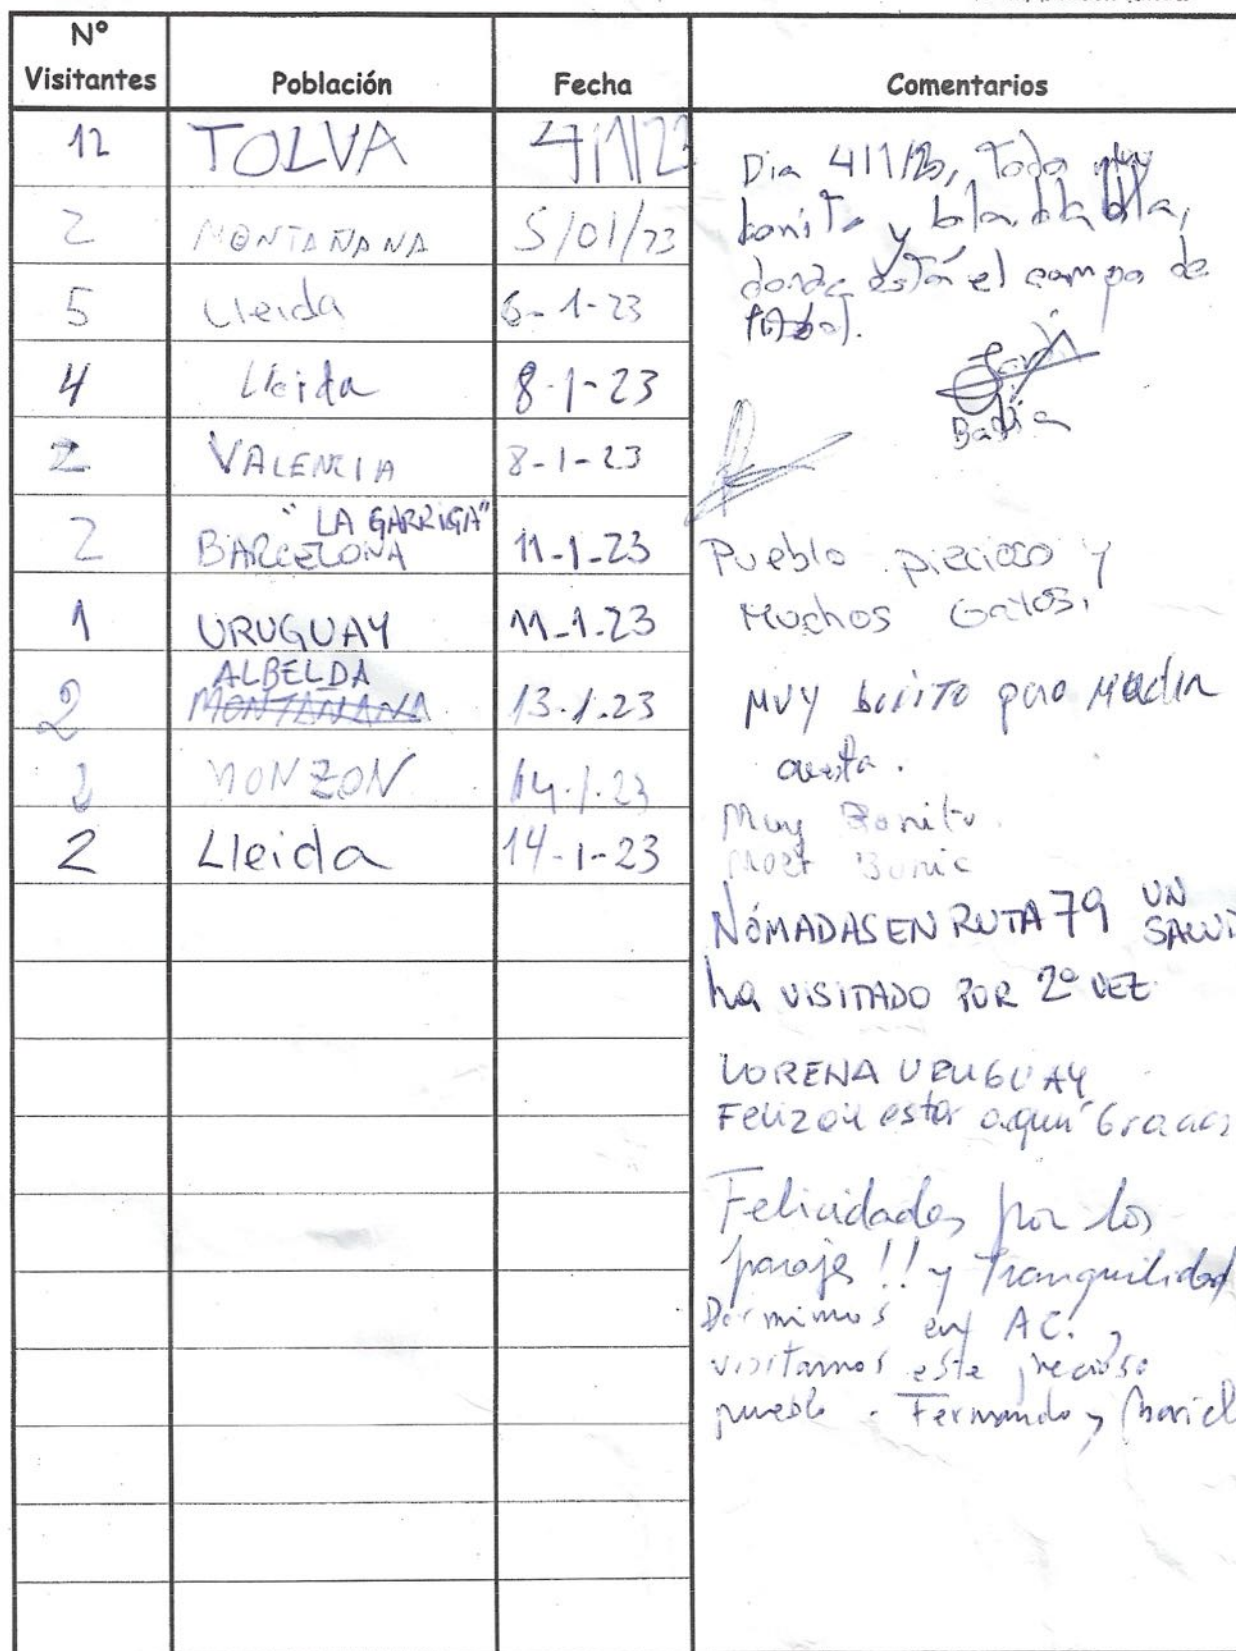 Nº
Visitantes Población Fecha Comentarios
12 TOLVA 4/1/23
2 MONTAÑANA 5/01/23
5 Lleida 6-1-23
4 Lleida 8-1-23
2 VALENCIA 8-1-23
"LA GARRIGA"
2 BARCELONA 11-1-23
1 URUGUAY 11-1-23
ALBELDA
2 MONTAÑANA 13-1-23
MONZON 14-1-23
2 Lleida 14-1-23
Dia 4/1/23, Todo muy
bonito y bla bla bla,
donde está el campo de
Jordi
Badia
Pueblo precioso y
Muchos Gatos,
MUY bonito pero Mucha
cuesta.
Muy Bonito.
Molt Bonic
NÓMADAS EN RUTA 79 UN
ha VISITADO POR 2º VEZ
LORENA URUGUAY
Feliz de estar aquí
Felicidades por los
paraje!! y Tranquilidad
Dormimos en AC. y
visitamos este precioso
pueblo. Fernando y